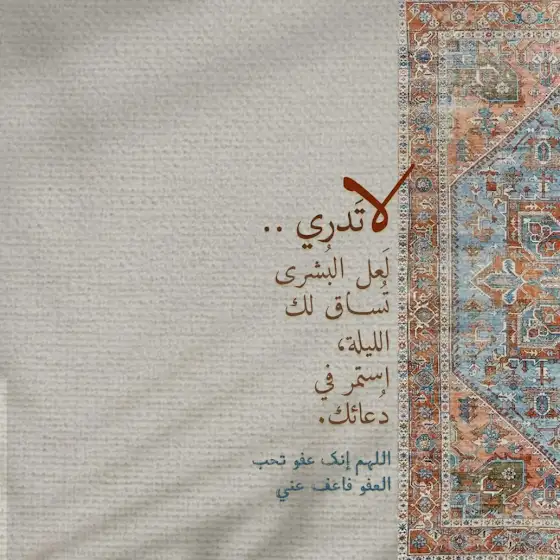 لا تَدري ..
لَعل البُشرى
تُساق لك
الليلة،
استمر في
دُعائك.
اللهم إنك عفو تحب
العفو فاعف عني